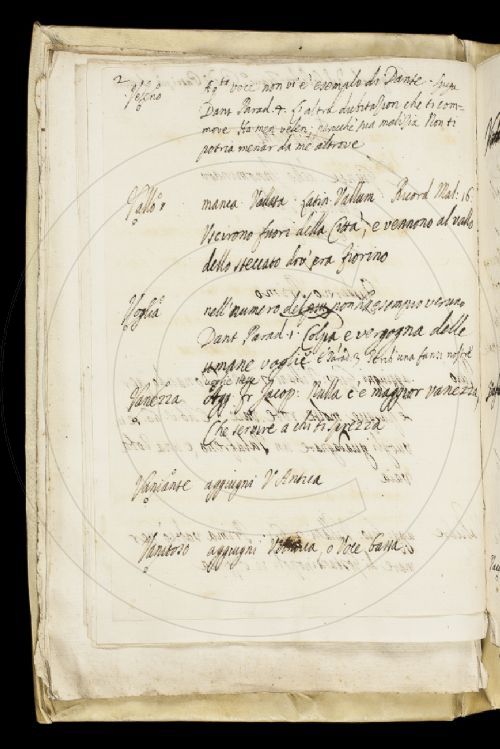 2
Veleno a q.ta voce non vi è esempio di Dante
Dant Parad. 4. L'altra dubitazion che ti com-
move Ha men velen, perochè sua malizia Non ti
potria menar da me altrove
Vallo manca Vallata Latin. Vallum. Ricord Mal: 16.
Uscirono fuori della Città, e vennono al vallo
dello steccato dov'era fiorino
Voglia nell'numero non ha esempio veruno
Dant Parad. 1. Colpa e vergogna delle
umane voglie. e Parad. 3. una fanno nostre
voglie stesse
Vanezza agg. fr. Jacop: Nulla c'è maggior vanezza,
Che servire a chi ti sprezza
Vaniante aggiugni V. Antica
Vanitoso aggiugni o Voce bassa